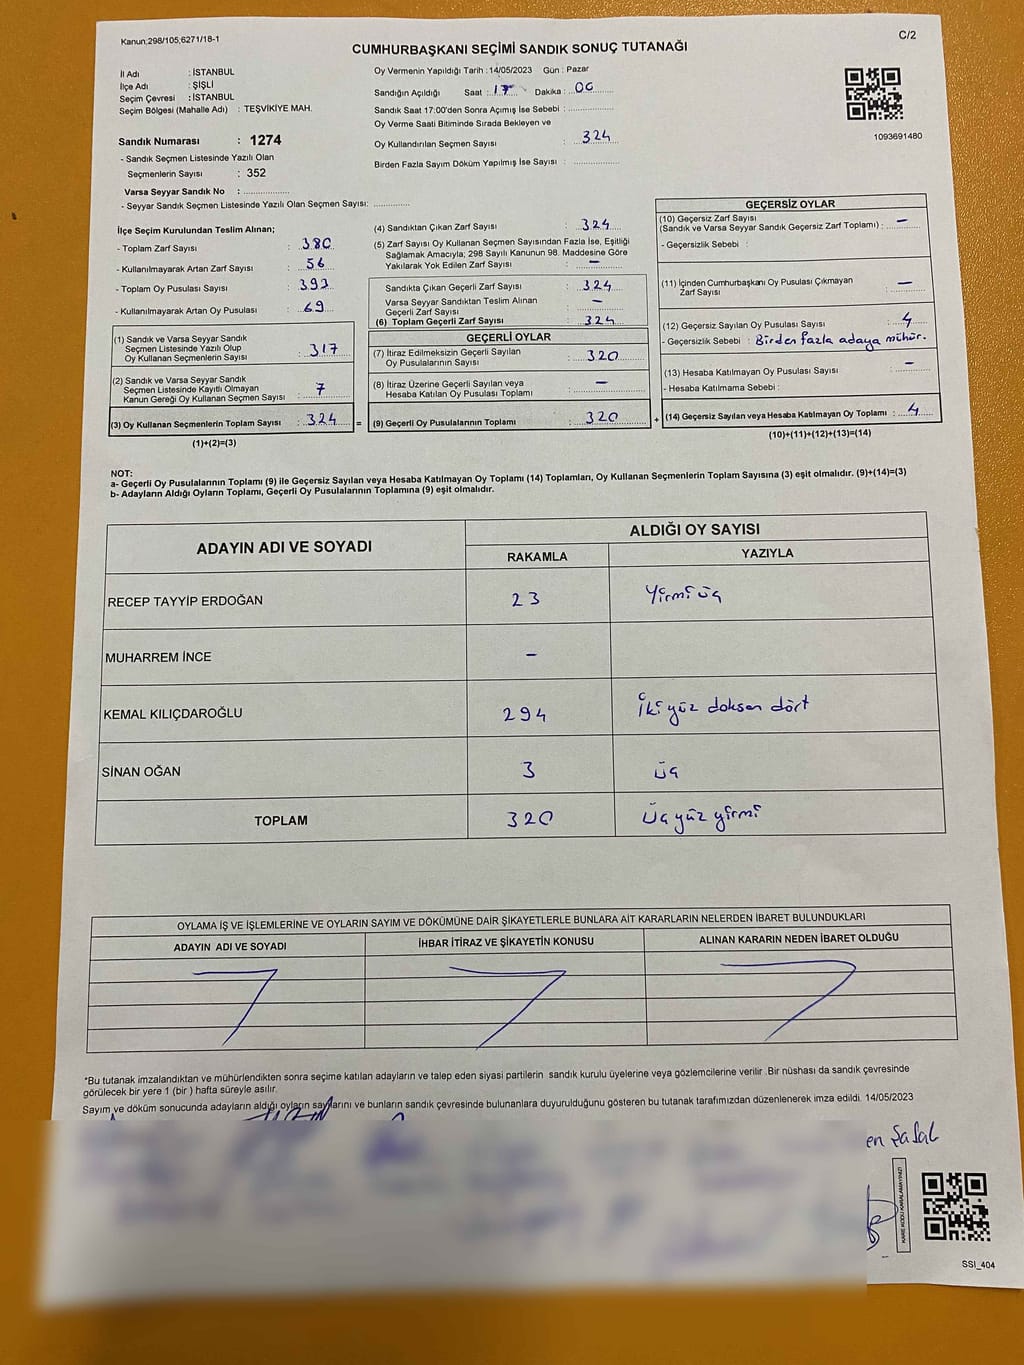 Kanun;298/105;6271/18-1
C/2
CUMHURBAŞKANI SEÇİMİ SANDIK SONUÇ TUTANAĞI
İl Adı : İSTANBUL
İlçe Adı : ŞİŞLİ
Seçim Çevresi : İSTANBUL
Seçim Bölgesi (Mahalle Adı) : TEŞVİKİYE MAH.
Oy Vermenin Yapıldığı Tarih : 14/05/2023 Gün : Pazar
Sandığın Açıldığı Saat : 17 Dakika : 00
Sandık Saat 17:00'den Sonra Açımış İse Sebebi :
Oy Verme Saati Bitiminde Sırada Bekleyen ve
Oy Kullandırılan Seçmen Sayısı : 324
Birden Fazla Sayım Döküm Yapılmış İse Sayısı :
1093691480
Sandık Numarası : 1274
- Sandık Seçmen Listesinde Yazılı Olan
Seçmenlerin Sayısı : 352
Varsa Seyyar Sandık No :
- Seyyar Sandık Seçmen Listesinde Yazılı Olan Seçmen Sayısı:
İlçe Seçim Kurulundan Teslim Alınan;
- Toplam Zarf Sayısı : 380
- Kullanılmayarak Artan Zarf Sayısı : 56
- Toplam Oy Pusulası Sayısı : 393
- Kullanılmayarak Artan Oy Pusulası : 69
(1) Sandık ve Varsa Seyyar Sandık
Seçmen Listesinde Yazılı Olup
Oy Kullanan Seçmenlerin Sayısı : 317
(2) Sandık ve Varsa Seyyar Sandık
Seçmen Listesinde Kayıtlı Olmayan
Kanun Gereği Oy Kullanan Seçmen Sayısı : 7
(3) Oy Kullanan Seçmenlerin Toplam Sayısı : 324 =
(1)+(2)=(3)
(4) Sandıktan Çıkan Zarf Sayısı : 324
(5) Zarf Sayısı Oy Kullanan Seçmen Sayısından Fazla İse, Eşitliği
Sağlamak Amacıyla; 298 Sayılı Kanunun 98. Maddesine Göre
Yakılarak Yok Edilen Zarf Sayısı : –
Sandıkta Çıkan Geçerli Zarf Sayısı : 324
Varsa Seyyar Sandıktan Teslim Alınan
Geçerli Zarf Sayısı : –
(6) Toplam Geçerli Zarf Sayısı : 324
GEÇERLİ OYLAR
(7) İtiraz Edilmeksizin Geçerli Sayılan
Oy Pusulalarının Sayısı : 320
(8) İtiraz Üzerine Geçerli Sayılan veya
Hesaba Katılan Oy Pusulası Toplamı : –
(9) Geçerli Oy Pusulalarının Toplamı : 320 +
GEÇERSİZ OYLAR
(10) Geçersiz Zarf Sayısı
(Sandık ve Varsa Seyyar Sandık Geçersiz Zarf Toplamı) : –
- Geçersizlik Sebebi :
(11) İçinden Cumhurbaşkanı Oy Pusulası Çıkmayan
Zarf Sayısı : –
(12) Geçersiz Sayılan Oy Pusulası Sayısı : 4
- Geçersizlik Sebebi : Birden fazla adaya mühür.
(13) Hesaba Katılmayan Oy Pusulası Sayısı : –
- Hesaba Katılmama Sebebi :
(14) Geçersiz Sayılan veya Hesaba Katılmayan Oy Toplamı : 4
(10)+(11)+(12)+(13)=(14)
NOT:
a- Geçerli Oy Pusulalarının Toplamı (9) ile Geçersiz Sayılan veya Hesaba Katılmayan Oy Toplamı (14) Toplamları, Oy Kullanan Seçmenlerin Toplam Sayısına (3) eşit olmalıdır. (9)+(14)=(3)
b- Adayların Aldığı Oyların Toplamı, Geçerli Oy Pusulalarının Toplamına (9) eşit olmalıdır.
ADAYIN ADI VE SOYADI ALDIĞI OY SAYISI
RAKAMLA YAZIYLA
RECEP TAYYİP ERDOĞAN 23 Yirmi üç
MUHARREM İNCE –
KEMAL KILIÇDAROĞLU 294 İki yüz doksan dört
SİNAN OĞAN 3 üç
TOPLAM 320 Üç yüz yirmi
OYLAMA İŞ VE İŞLEMLERİNE VE OYLARIN SAYIM VE DÖKÜMÜNE DAİR ŞİKAYETLERLE BUNLARA AİT KARARLARIN NELERDEN İBARET BULUNDUKLARI
ADAYIN ADI VE SOYADI İHBAR İTİRAZ VE ŞİKAYETİN KONUSU ALINAN KARARIN NEDEN İBARET OLDUĞU
*Bu tutanak imzalandıktan ve mühürlendikten sonra seçime katılan adayların ve talep eden siyasi partilerin sandık kurulu üyelerine veya gözlemcilerine verilir .Bir nüshası da sandık çevresinde
görülecek bir yere 1 (bir ) hafta süreyle asılır.
Sayım ve döküm sonucunda adayların aldığı oyların sayılarını ve bunların sandık çevresinde bulunanlara duyurulduğunu gösteren bu tutanak tarafımızdan düzenlenerek imza edildi. 14/05/2023
en Şafak
KARE KODU KARALAMAYINIZ!
SSI_404